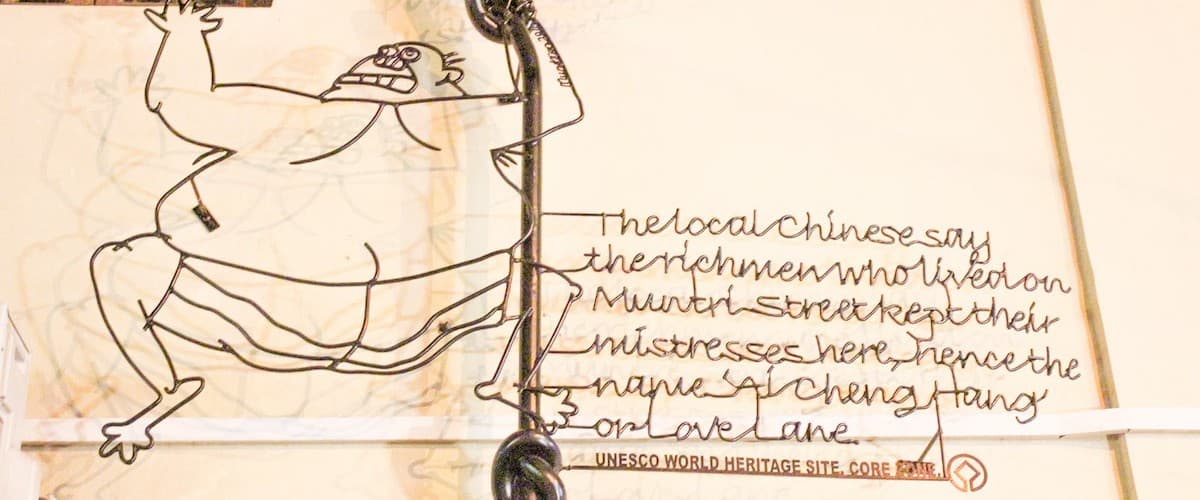 The local Chinese say
the rich men who lived on
Muntri Street kept their
mistresses here, hence the
name 'Ai Cheng Hang'
or Love Lane.
UNESCO WORLD HERITAGE SITE, CORE ZONE.